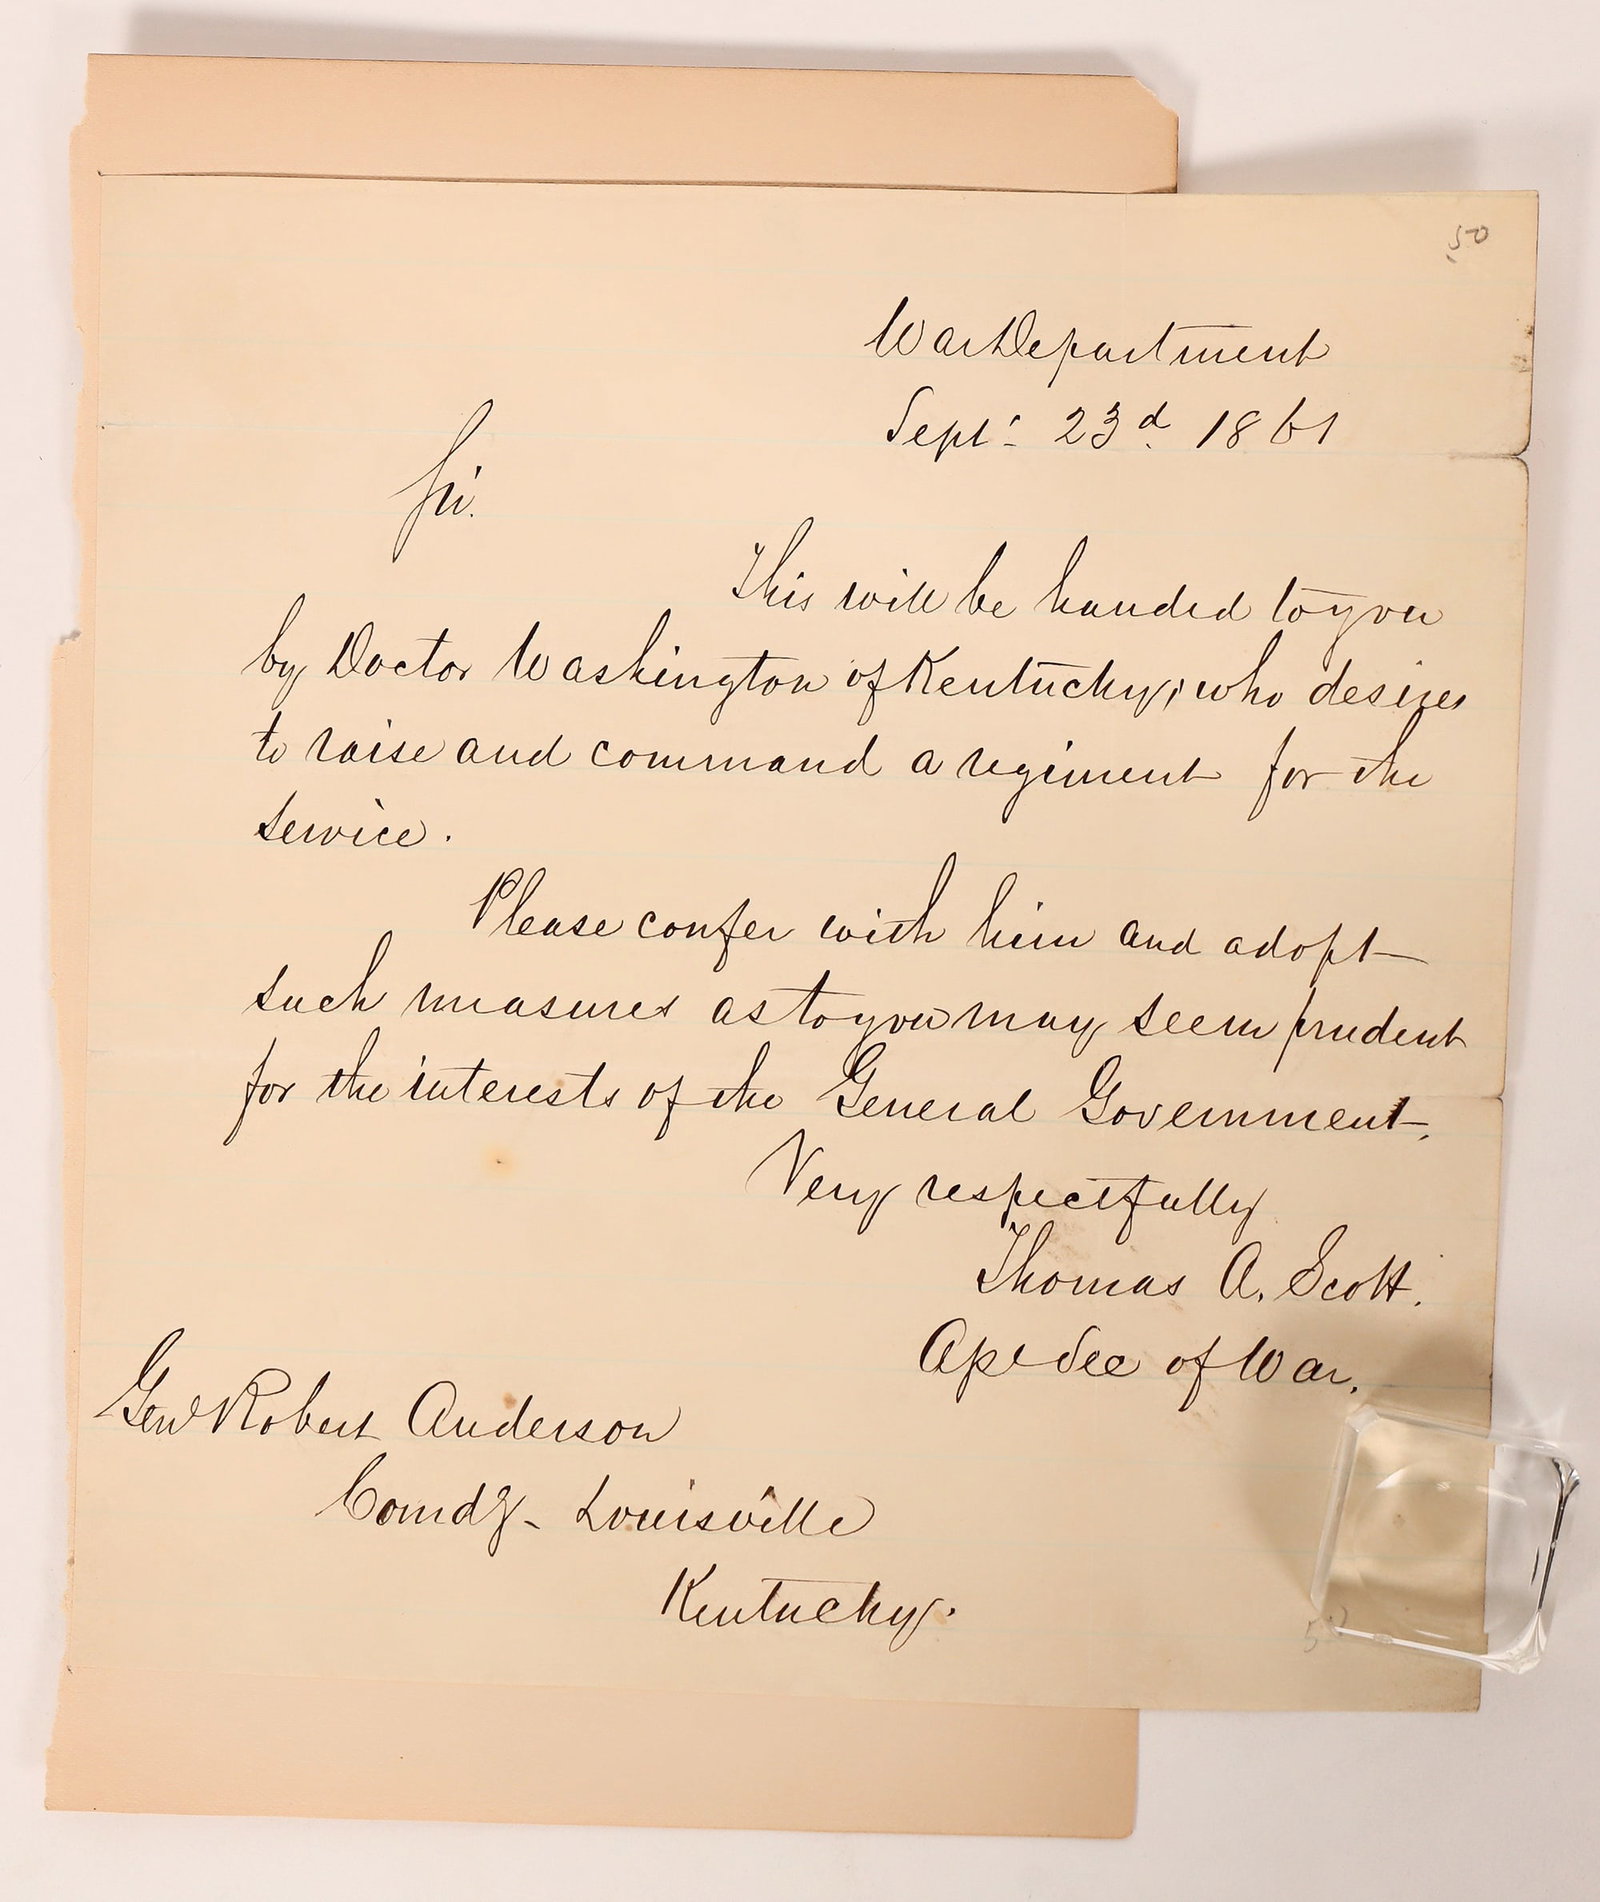 50
War Department
Sept: 23d. 1861
Sir.
This will be handed to you
by Doctor Washington of Kentucky, who desires
to raise and command a regiment for the
service.
Please confer with him and adopt
such measures as to you may seem prudent
for the interests of the General Government.
Very respectfully
Thomas A. Scott.
Asst Sec of War.
Genl Robert Anderson
Comdg - Louisville
Kentucky.